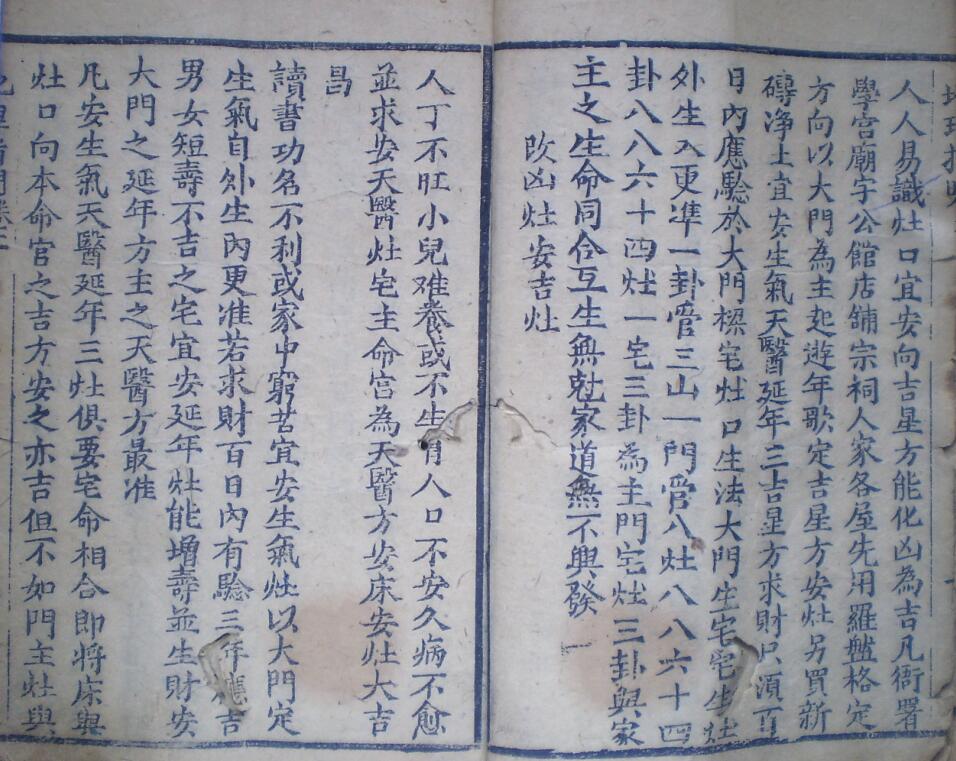 人人易識灶口宜安向吉星方能化凶為吉凡衙署
學宫廟宇公館店舖宗祠人家各屋先用羅盤格定
方向以大門為主起遊年歌定吉星方安灶另買新
磚净土宜安生氣天醫延年三吉星方求財只須百
日内應騐於大門樑宅灶口生法大門生宅宅生灶
外生入更準一卦管三山一門管八灶八八六十四
卦八八六十四灶一宅三卦為主門宅灶三卦與家
主之生命同合互生無尅家道無不興發
改凶灶安吉灶
人丁不旺小兒难養或不生育人口不安久病不愈
並求安天醫灶宅主命宫為天醫方安床安灶大吉
昌
讀書功名不利或家中窮苦宜安生氣灶以大門定
生氣自外生内更准若求財百日内有騐三年應吉
男女短壽不吉之宅宜安延年灶能增壽並生財安
大門之延年方主之天醫方最准
凡安生氣天醫延年三灶俱要宅命相合即將床與
灶口向本命宫之吉方安之亦吉但不如門主灶與